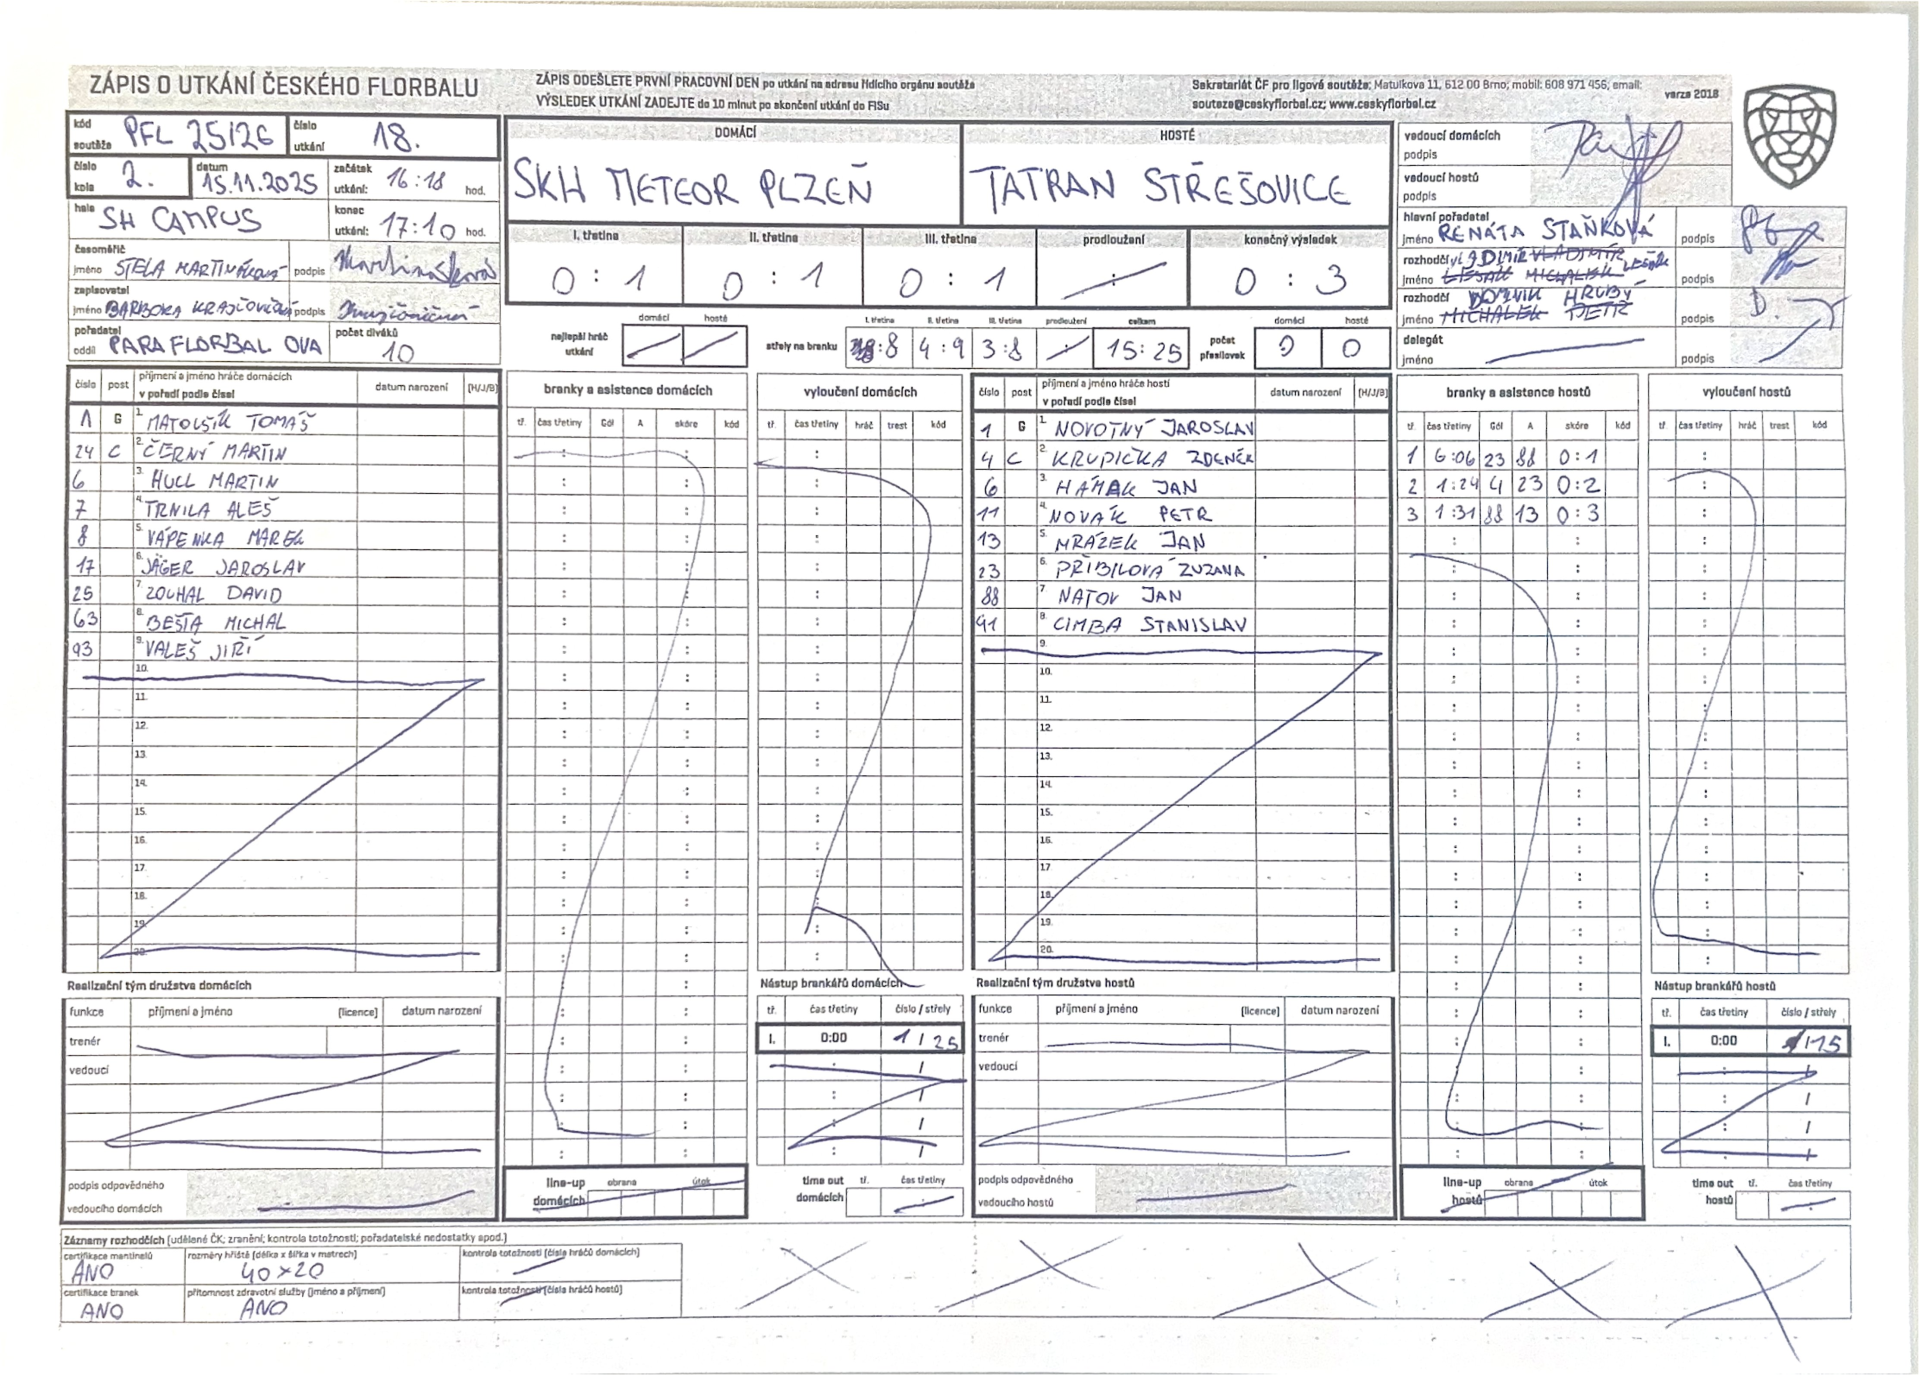 ZÁPIS O UTKÁNÍ ČESKÉHO FLORBALU
ZÁPIS ODEŠLETE PRVNÍ PRACOVNÍ DEN po utkání na adresu řídícího orgánu soutěže
VÝSLEDEK UTKÁNÍ ZADEJTE do 10 minut po skončení utkání do FISu
Sekretariát ČF pro ligové soutěže: Matulkova 11, 612 00 Brno; mobil: 608 971 456; email:
souteze@ceskyflorbal.cz; www.ceskyflorbal.cz
verze 2018
kód soutěže PFL 25/26 číslo utkání 18.
číslo kola 2. datum 15.11.2025 začátek utkání: 16:18 hod.
hala SH CAMPUS konec utkání: 17:10 hod.
časoměřič
jméno STELA podpis
zapisovatel
jméno BARBORA podpis
pořadatel oddíl PARA FLORBAL OVA počet diváků 10
DOMÁCÍ HOSTÉ
SKH METEOR PLZEŇ TATRAN STŘEŠOVICE
I. třetina II. třetina III. třetina prodloužení konečný výsledek
0 : 1 0 : 1 0 : 1 : 0 : 3
nejlepší hráč utkání domácí hosté
střely na branku I. třetina II. třetina III. třetina prodloužení celkem
:8 4:9 3:8 : 15:25
počet přesilovek domácí hosté
0 0
vedoucí domácích
podpis
vedoucí hostů
podpis
hlavní pořadatel
jméno RENÁTA STAŇKOVÁ podpis
rozhodčí
jméno podpis
rozhodčí DOMINIK HRUBÝ
jméno MICHALEK PETR podpis D.
delegát
jméno podpis
číslo post příjmení a jméno hráče domácích v pořadí podle čísel datum narození (H/J/B)
1 G 1. MATOUŠÍK TOMÁŠ
24 C 2. ČERNÝ MARTIN
6 3. HULL MARTIN
7 4. TRNILA ALEŠ
8 5. VÁPENKA MAREK
17 6. JÄGER JAROSLAV
25 7. ZOUHAL DAVID
63 8. BEŠTA MICHAL
93 9. VALEŠ JIŘÍ
10.
11.
12.
13.
14.
15.
16.
17.
18.
19.
20.
branky a asistence domácích
tř. čas třetiny Gól A skóre kód
vyloučení domácích
tř. čas třetiny hráč trest kód
číslo post příjmení a jméno hráče hostí v pořadí podle čísel datum narození (H/J/B)
1 G 1. NOVOTNÝ JAROSLAV
4 C 2. KRUPIČKA ZDENĚK
6 3. HÁMAK JAN
11 4. NOVÁK PETR
13 5. MRÁZEK JAN
23 6. PŘIBILOVÁ ZUZANA
88 7. NATOV JAN
91 8. CIMBA STANISLAV
9.
10.
11.
12.
13.
14.
15.
16.
17.
18.
19.
20.
branky a asistence hostů
tř. čas třetiny Gól A skóre kód
1 6:06 23 88 0:1
2 1:24 4 23 0:2
3 1:31 88 13 0:3
vyloučení hostů
tř. čas třetiny hráč trest kód
Realizační tým družstva domácích
funkce příjmení a jméno (licence) datum narození
trenér
vedoucí
podpis odpovědného
vedoucího domácích
line-up domácích obrana útok
Nástup brankářů domácích
tř. čas třetiny číslo / střely
I. 0:00 1 / 25
time out domácích tř. čas třetiny
Realizační tým družstva hostů
funkce příjmení a jméno (licence) datum narození
trenér
vedoucí
podpis odpovědného
vedoucího hostů
line-up hostů obrana útok
Nástup brankářů hostů
tř. čas třetiny číslo / střely
I. 0:00 1/15
time out hostů tř. čas třetiny
Záznamy rozhodčích (udělené ČK; zranění; kontrola totožnosti; pořadatelské nedostatky apod.)
certifikace mantinelů rozměry hřiště (délka x šířka v metrech) kontrola totožnosti (čísla hráčů domácích)
ANO 40×20
certifikace branek přítomnost zdravotní služby (jméno a příjmení) kontrola totožnosti (čísla hráčů hostů)
ANO ANO